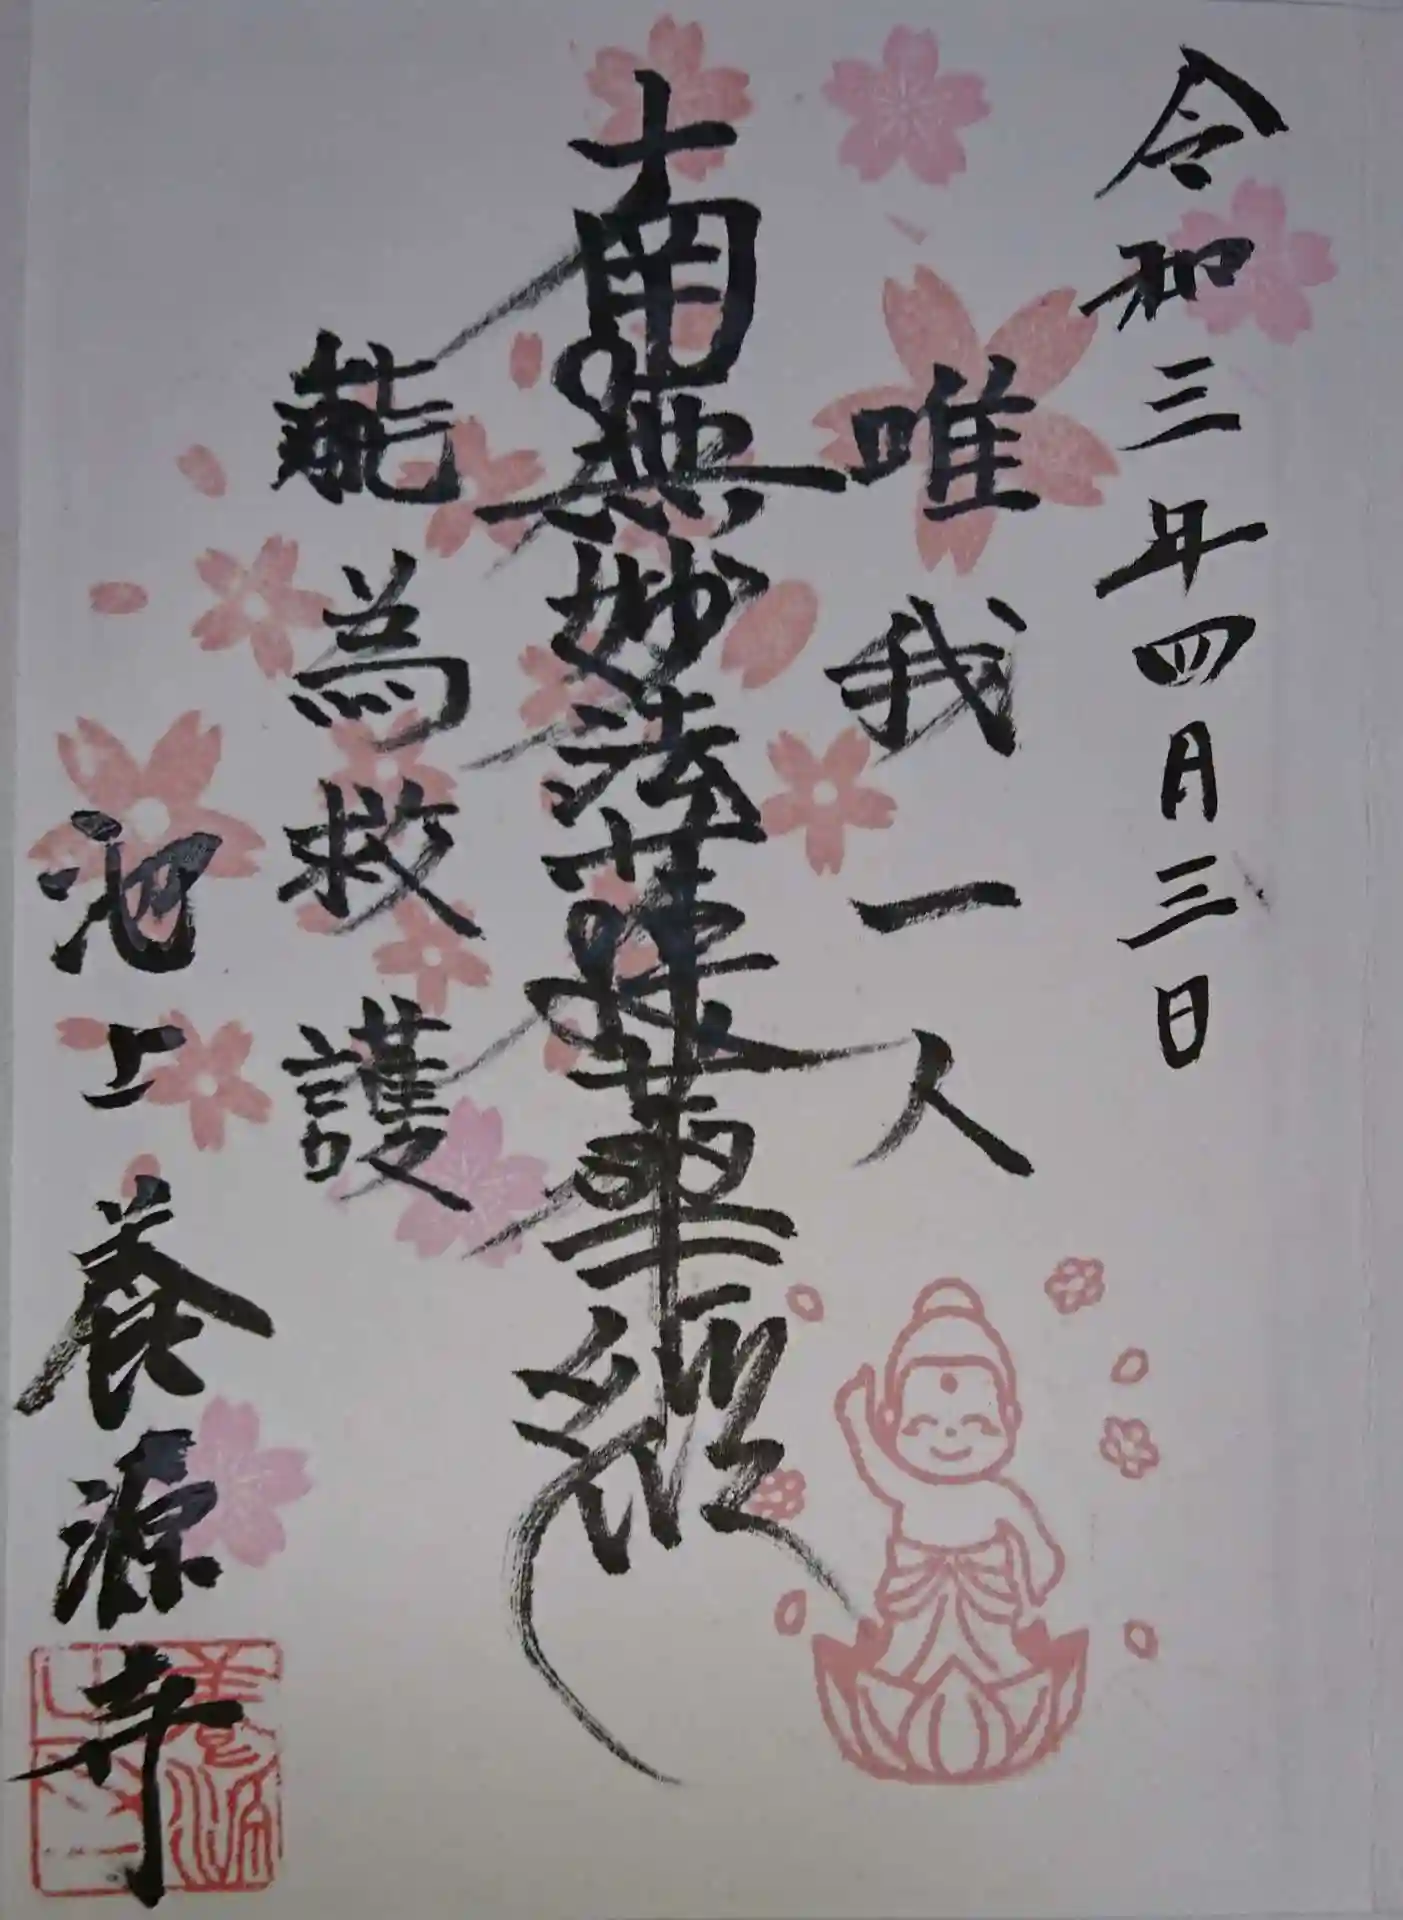 令和三年四月三日
唯我一人
南無妙法蓮華経
能為救護
池上養源寺